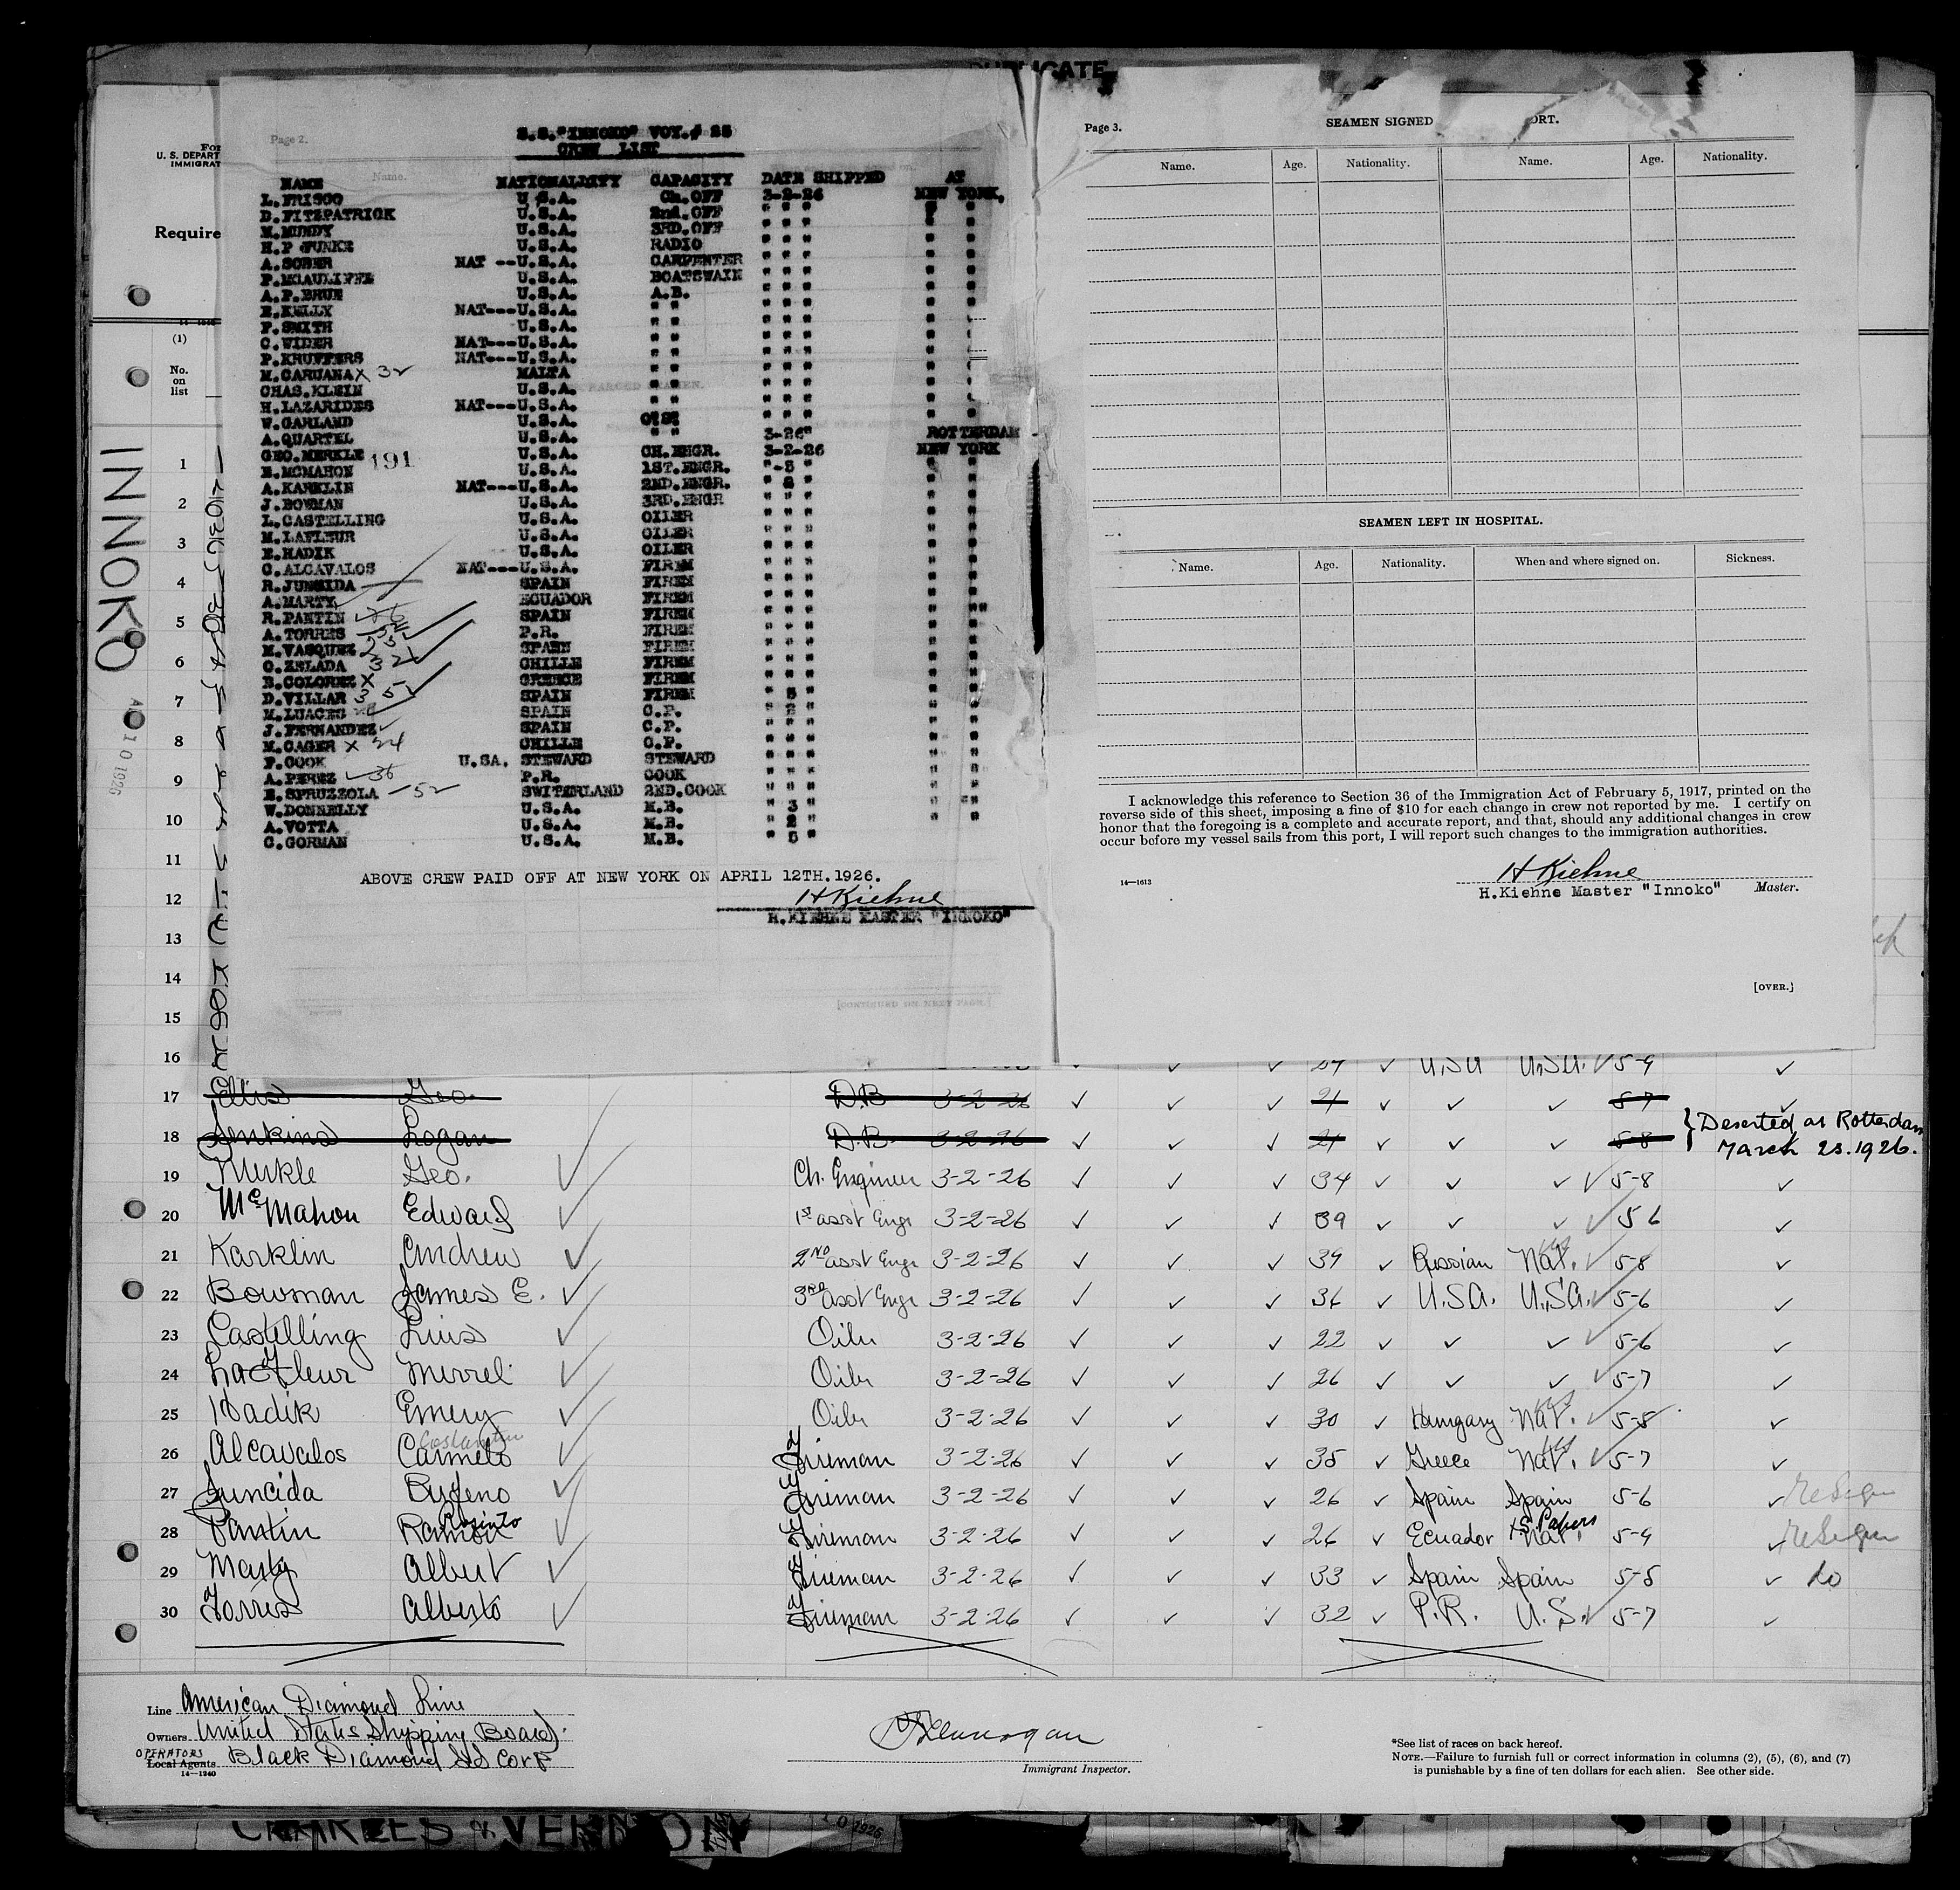 DUPLICATE
For
U. S. DEPART
IMMIGRAT
Require
(1)
No.
on
list
INNOKO
10 1926
Page 2.
S.S."INNOKO" VOY.# 25
CREW LIST
NAME NATIONALITY CAPACITY DATE SHIPPED AT
L.FRISCO U.S.A. Ch.OFF 3-2-26 NEW YORK,
D.FITZPATRICK U.S.A. 2nd.OFF " " " " "
M.MUNDY U.S.A. 3RD.OFF " " " " "
H.P JUNKE U.S.A. RADIO " " " " "
A.SOBER NAT --U.S.A. CARPENTER " " " " "
P.MCAULIFFE U.S.A. BOATSWAIN " " " " "
A.P.BRUE U.S.A. A.B. " " " " "
E.KELLY NAT---U.S.A. " " " " " " "
F.SMITH U.S.A. " " " " " " "
C.WIDER NAT---U.S.A. " " " " " " "
P.KRUFFERS NAT---U.S.A. " " " " " " "
M.CARUANA X 32 MALTA " " " " " " "
CHAS.KLEIN U.S.A. " " " " " " "
H.LAZARIDES NAT---U.S.A. " " " " " " "
W.GARLAND U.S.A. O.S. " " " " "
A.QUARTEL U.S.A. " " 3-26" ROTTERDAM
GEO.MERKLE 191 U.S.A. CH.ENGR. 3-2-26 NEW YORK
E.MCMAHON U.S.A. 1ST.ENGR. "-5 " " "
A.KARKLIN NAT---U.S.A. 2ND.ENGR. " 2 " " "
J.BOWMAN U.S.A. 3RD.ENGR " " " " "
L.CASTELLING U.S.A. OILER " " " " "
M.LAFLEUR U.S.A. OILER " " " " "
E.HADIK U.S.A. OILER " " " " "
C.ALCAVALOS NAT---U.S.A. FIREM " " " " "
R.JUNCIDA SPAIN FIREM " " " " "
A.MARTY ECUADOR FIREM " " " " "
R.PANTIN SPAIN FIREM " " " " ""
A.TORRES P.R. FIREM " " " " "
M.VASQUEZ SPAEN FIREM " " " " "
O.ZELADA 32 CHILLE FIREM " " " " "
B.COLOREZ X GREECE FIREM " " " " "
D.VILLAR 35 SPAIN FIREM " 5 " " "
M.LUACES SPAIN C.P. " 2 " " "
J.FERNANDEZ SPAIN C.P. " " " " "
M.CAGER X 24 CHILLE C.P. " " " " "
F.COOK U.SA. STEWARD STEWARD " " " " "
A.PEREZ 36 P.R. COOK " " " " "
E.SPRUZZOLA 52 SWITERLAND 2ND.COOK " " " " "
W.DONNELLY U.S.A. M.B. " 3 " " "
A.VOTTA U.S.A. M.B. " 2 " " "
C.GORMAN U.S.A. M.B. " 5 "
ABOVE CREW PAID OFF AT NEW YORK ON APRIL 12TH.1926.
H Kiehne
H.KIEHNE MASTER "INNOKO"
[CONTINUED ON NEXT PAGE.]
Page 3.
SEAMEN SIGNED ORT.
Name. Age. Nationality. Name. Age. Nationality.
SEAMEN LEFT IN HOSPITAL.
Name. Age. Nationality. When and where signed on. Sickness.
I acknowledge this reference to Section 36 of the Immigration Act of February 5, 1917, printed on the
reverse side of this sheet, imposing a fine of $10 for each change in crew not reported by me. I certify on
honor that the foregoing is a complete and accurate report, and that, should any additional changes in crew
occur before my vessel sails from this port, I will report such changes to the immigration authorities.
H Kiehne
14—1613 H.Kiehne Master "Innoko" Master.
[OVER.]
1
2
3
4
5
6
7
8
9
10
11
12
13
14
15
16 U.S.A U.S.A. 5-9
17 Ellis Geo. D.B 3-2-26 21 5-7
18 Jenkins Logan D.B. 3-2-26 21 5-8
} Deserted at Rotterdam
March 23.1926.
19 Merkle Geo. Ch. Engineer 3-2-26 34 5-8
20 McMahon Edward 1st asst Engr 3-2-26 39 5 6
21 Karklin Andrew 2ND asst Engr 3-2-26 39 Russian Nat. 5-8
22 Bowman James E. 3RD asst Engr 3-2-26 36 U.S.A. U.S.A. 5-6
23 Castelling Luis Oiler 3-2-26 22 5-6
24 LaFleur Merrel Oiler 3-2-26 26 5-7
25 Hadik Emery Oiler 3-2-26 30 Hungary Nat. 5-8
26 Alcavalos Carmelo Costantin Fireman 3-2-26 35 Greece Nat. 5-7
27 Juncida Bufeno Fireman 3-2-26 26 Spain Spain 5-6
28 Pantin Ramon Rosinto Fireman 3-2-26 26 Ecuador Nat. 1st Papers 5-9
29 Marty Albert Fireman 3-2-26 33 Spain Spain 5-5 do
30 Torres Alberto Fireman 3-2-26 32 P.R. U.S. 5-7
Line American Diamond Line
Owners United States Shipping Board
OPERATORS
Local Agents Black Diamond SS Corp
14—1240
Immigrant Inspector.
*See list of races on back hereof.
NOTE.—Failure to furnish full or correct information in columns (2), (5), (6), and (7)
is punishable by a fine of ten dollars for each alien. See other side.
CHARLES & VERNON
10 1926